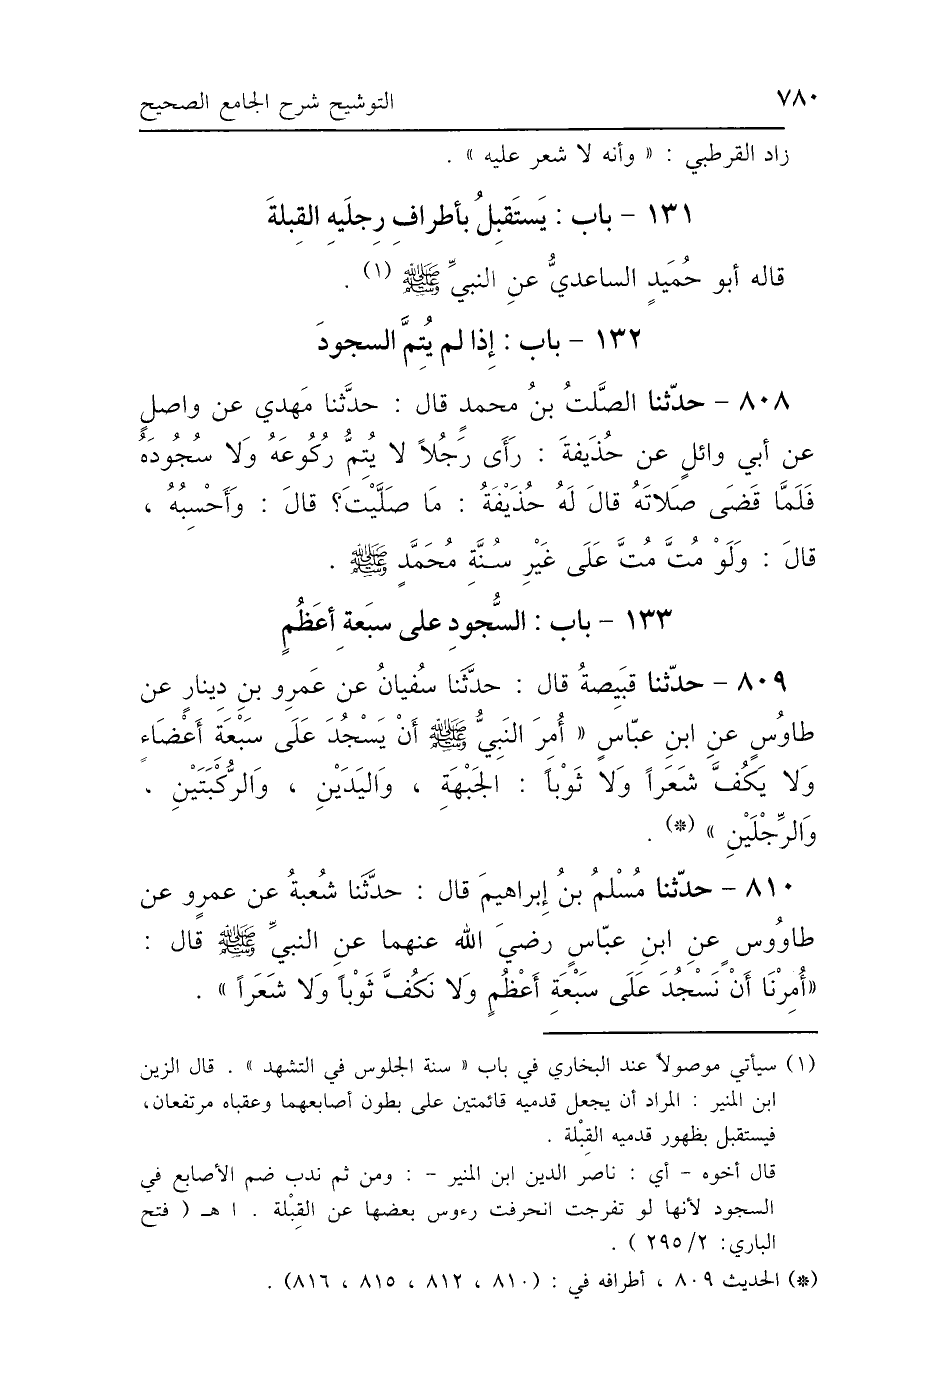 ٧٨٠ التوشيح شرح الجامع الصحيح
زاد القرطبي : « وأنه لا شعر عليه » .
١٣١ – باب : يَستَقبِلُ بأطرافِ رِجلَيهِ القِبلةَ
قاله أبو حُمَيدٍ الساعديُّ عنِ النبيِّ ﷺ (١) .
١٣٢ – باب : إذا لم يُتِمَّ السجودَ
٨٠٨ – حدّثنا الصَّلتُ بنُ محمدٍ قال : حدَّثنا مَهدي عن واصلٍ
عن أبي وائلٍ عن حُذَيفةَ : رَأَى رَجُلاً لا يُتِمُّ رُكُوعَهُ وَلا سُجُودَهُ
فَلَمَّا قَضَى صَلاتَهُ قالَ لَهُ حُذَيْفَةُ : مَا صَلَّيْتَ؟ قالَ : وَأَحْسِبُهُ ،
قالَ : وَلَوْ مُتَّ مُتَّ عَلَى غَيْرِ سُنَّةِ مُحَمَّدٍ ﷺ .
١٣٣ – باب : السُّجودِ على سبَعةِ أعَظُمٍ
٨٠٩ – حدّثنا قبَيصةُ قال : حدَّثَنا سفُيانُ عن عَمرِو بنِ دينارٍ عن
طاوُسٍ عنِ ابنِ عبّاسٍ « أُمِرَ النَبيُّ ﷺ أَنْ يَسْجُدَ عَلَى سَبْعَةِ أَعْضَاءٍ
وَلا يَكُفَّ شَعَراً وَلا ثَوْباً : الجَبْهَةِ ، وَاليَدَيْنِ ، وَالرُّكْبَتَيْنِ .
وَالرِّجْلَيْنِ » (*) .
٨١٠ – حدّثنا مُسْلمُ بنُ إبراهيمَ قال : حدَّثَنا شُعبةُ عن عمرٍو عن
طاوُوس عنِ ابنِ عبّاسٍ رضيَ الله عنهما عنِ النبيِّ ﷺ قال :
«أُمِرْنَا أَنْ نَسْجُدَ عَلَى سَبْعَةِ أَعْظُمٍ وَلا نَكُفَّ ثَوْباً وَلا شَعَراً » .
(١) سيأتي موصولاً عند البخاري في باب « سنة الجلوس في التشهد » . قال الزين
ابن المنير : المراد أن يجعل قدميه قائمتين على بطون أصابعهما وعقباه مرتفعان،
فيستقبل بظهور قدميه القِبْلة .
قال أخوه – أي : ناصر الدين ابن المنير – : ومن ثم ندب ضم الأصابع في
السجود لأنها لو تفرجت انحرفت رءوس بعضها عن القِبْلة . ا هـ ( فتح
الباري: ٢/ ٢٩٥ ) .
(*) الحديث ٨٠٩ ، أطرافه في : (٨١٠ ، ٨١٢ ، ٨١٥ ، ٨١٦) .